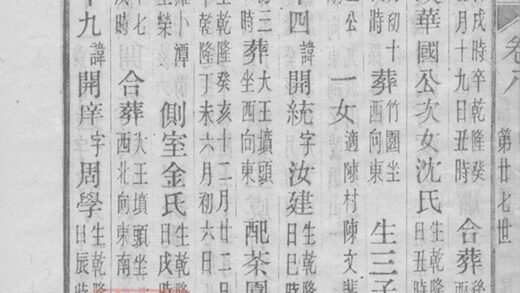 卷八 第廿七世
戌時卒乾隆癸 合葬後
月十九日丑時
華國公次女沈氏生乾隆
日丑時
月初十 葬竹園坐 生三子
時 酉向東
公 一女適陳村陳文斐
十四諱開統字汝建生乾隆
日巳時
初三葬大王墳頭 配茶園
時 坐西向東
生乾隆癸亥十二月廿二日
乾隆丁未六月初六日
雅卜潭側室金氏生乾隆
生榮 日戌時
十七合葬大王墳頭坐
時 西北向東南
十九諱開庠字周學生乾隆
日辰時